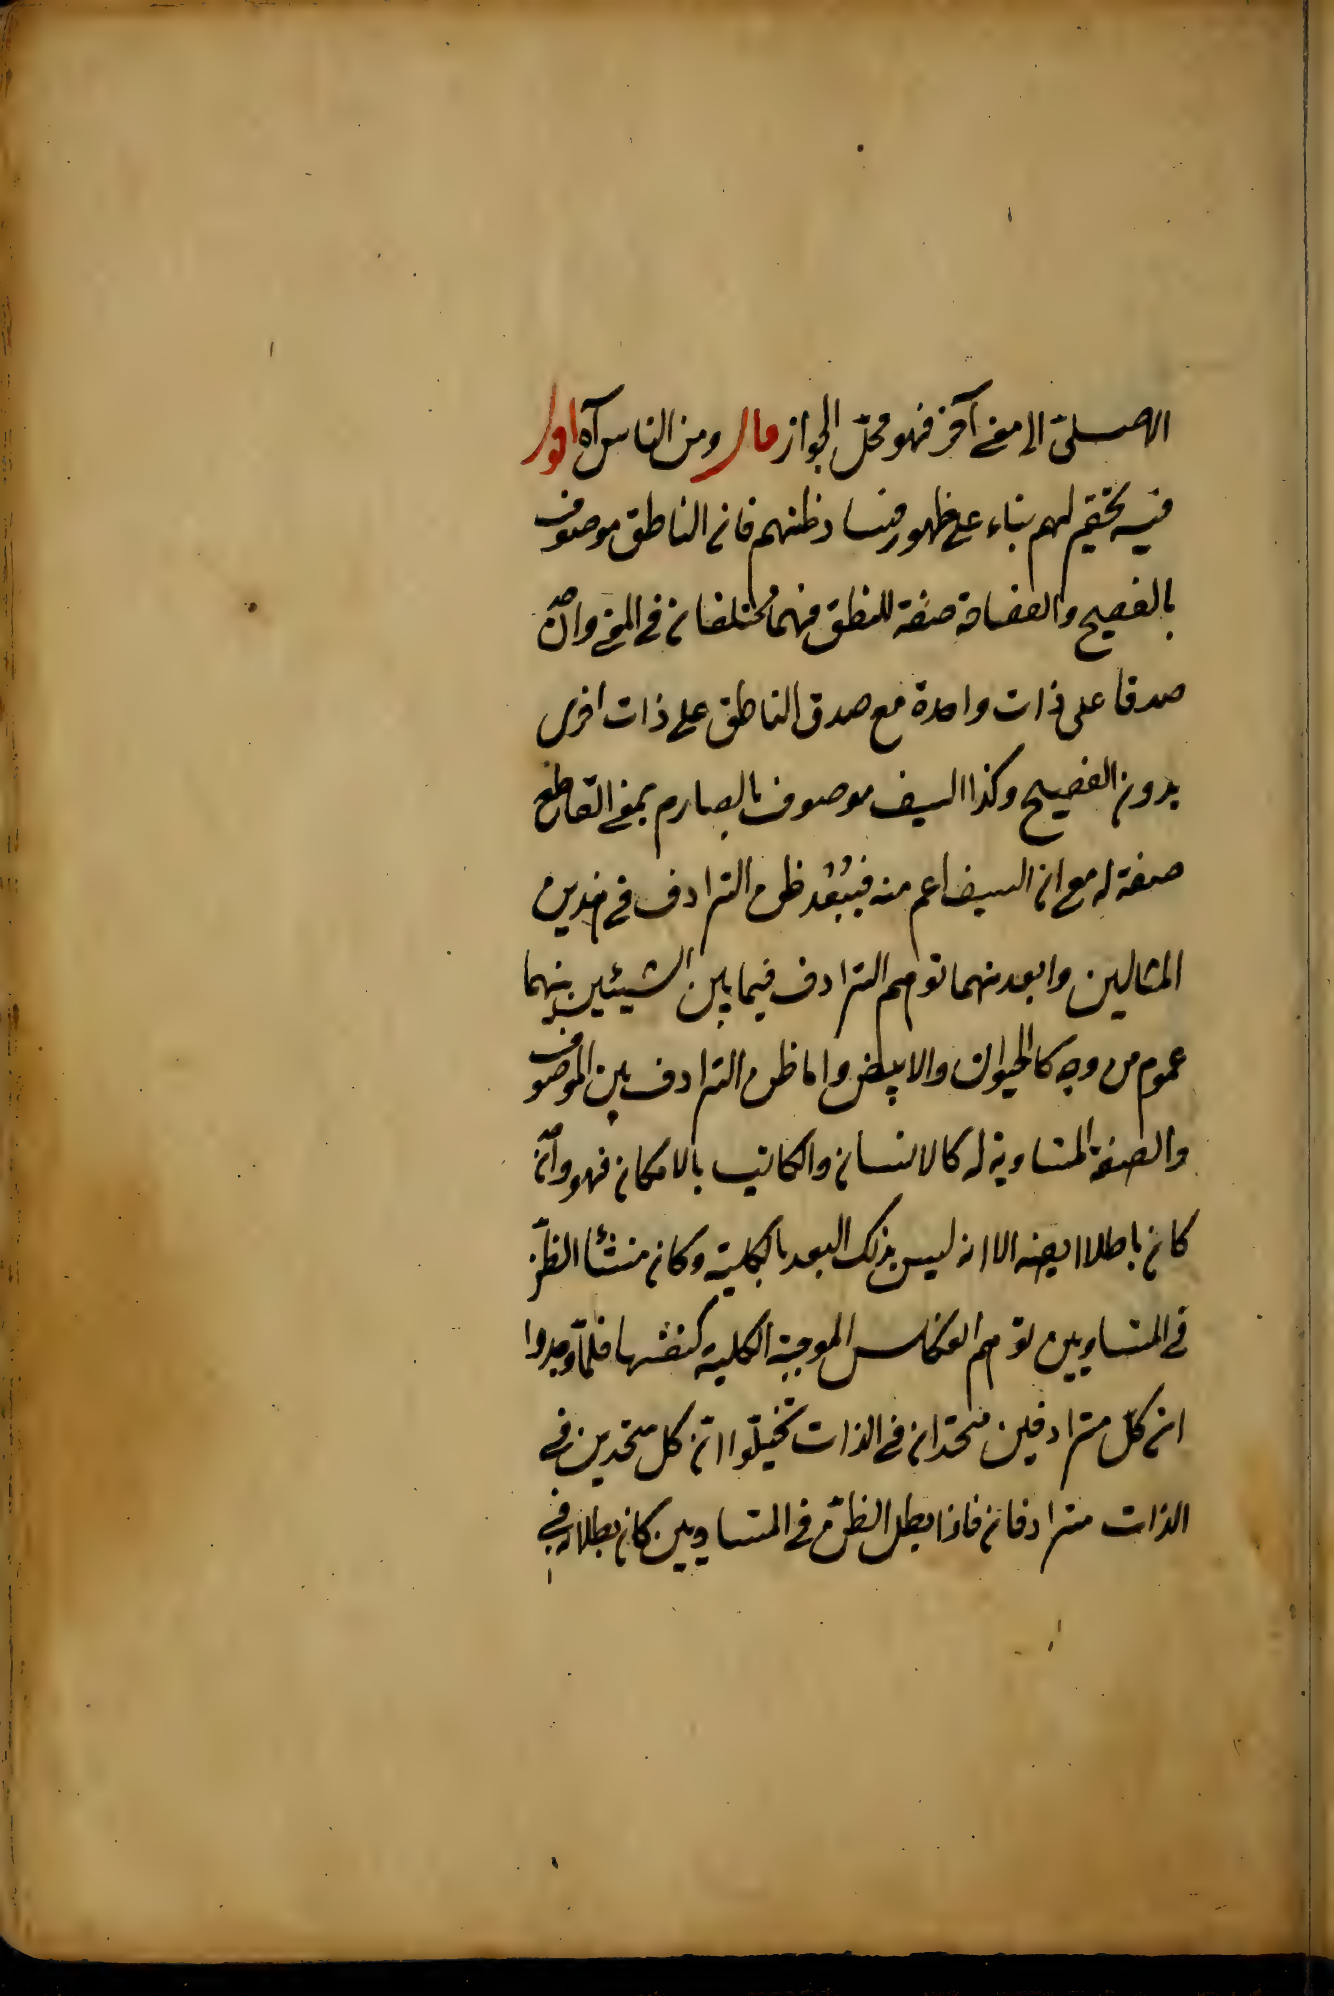 الاصلىّ الى معنى آخر فهو محلّ الجواز قال ومن الناس آه اقول
فيه تحقير لهم بناء على ظهور فساد ظنهم فان الناطق موصوف
بالفصيح والفصاحة صفة للنطق فهما مختلفان فى المعنى وان
صدقا على ذات واحدة مع صدق الناطق على ذات اخرى
بدون الفصيح وكذا السيف موصوف بالصارم بمعنى القاطع
صفة له مع ان السيف اعم منه فيبعُد ظن الترادف فى هذين
المثالين وابعد منهما توهم الترادف فيما بين الشيئين بينهما
عموم من وجه كالحيوان والابيض واما ظن الترادف بين الموصوف
والصفة المتساوية له كالانسان والكاتب بالامكان فهو وان
كان باطلا ايضا الا انه ليس بذلك البعد بالكلية وكان منشأ الظن
فى المتساويين توهم انعكاس الموجبة الكلية كنفسها فلمّا وجدوا
ان كلّ مترادفين متحدان فى الذات تخيلّوا انّ كل متحدين فى
الذات مترادفان فاذا بطل الظنّ فى المتساويين كان بطلانه فى